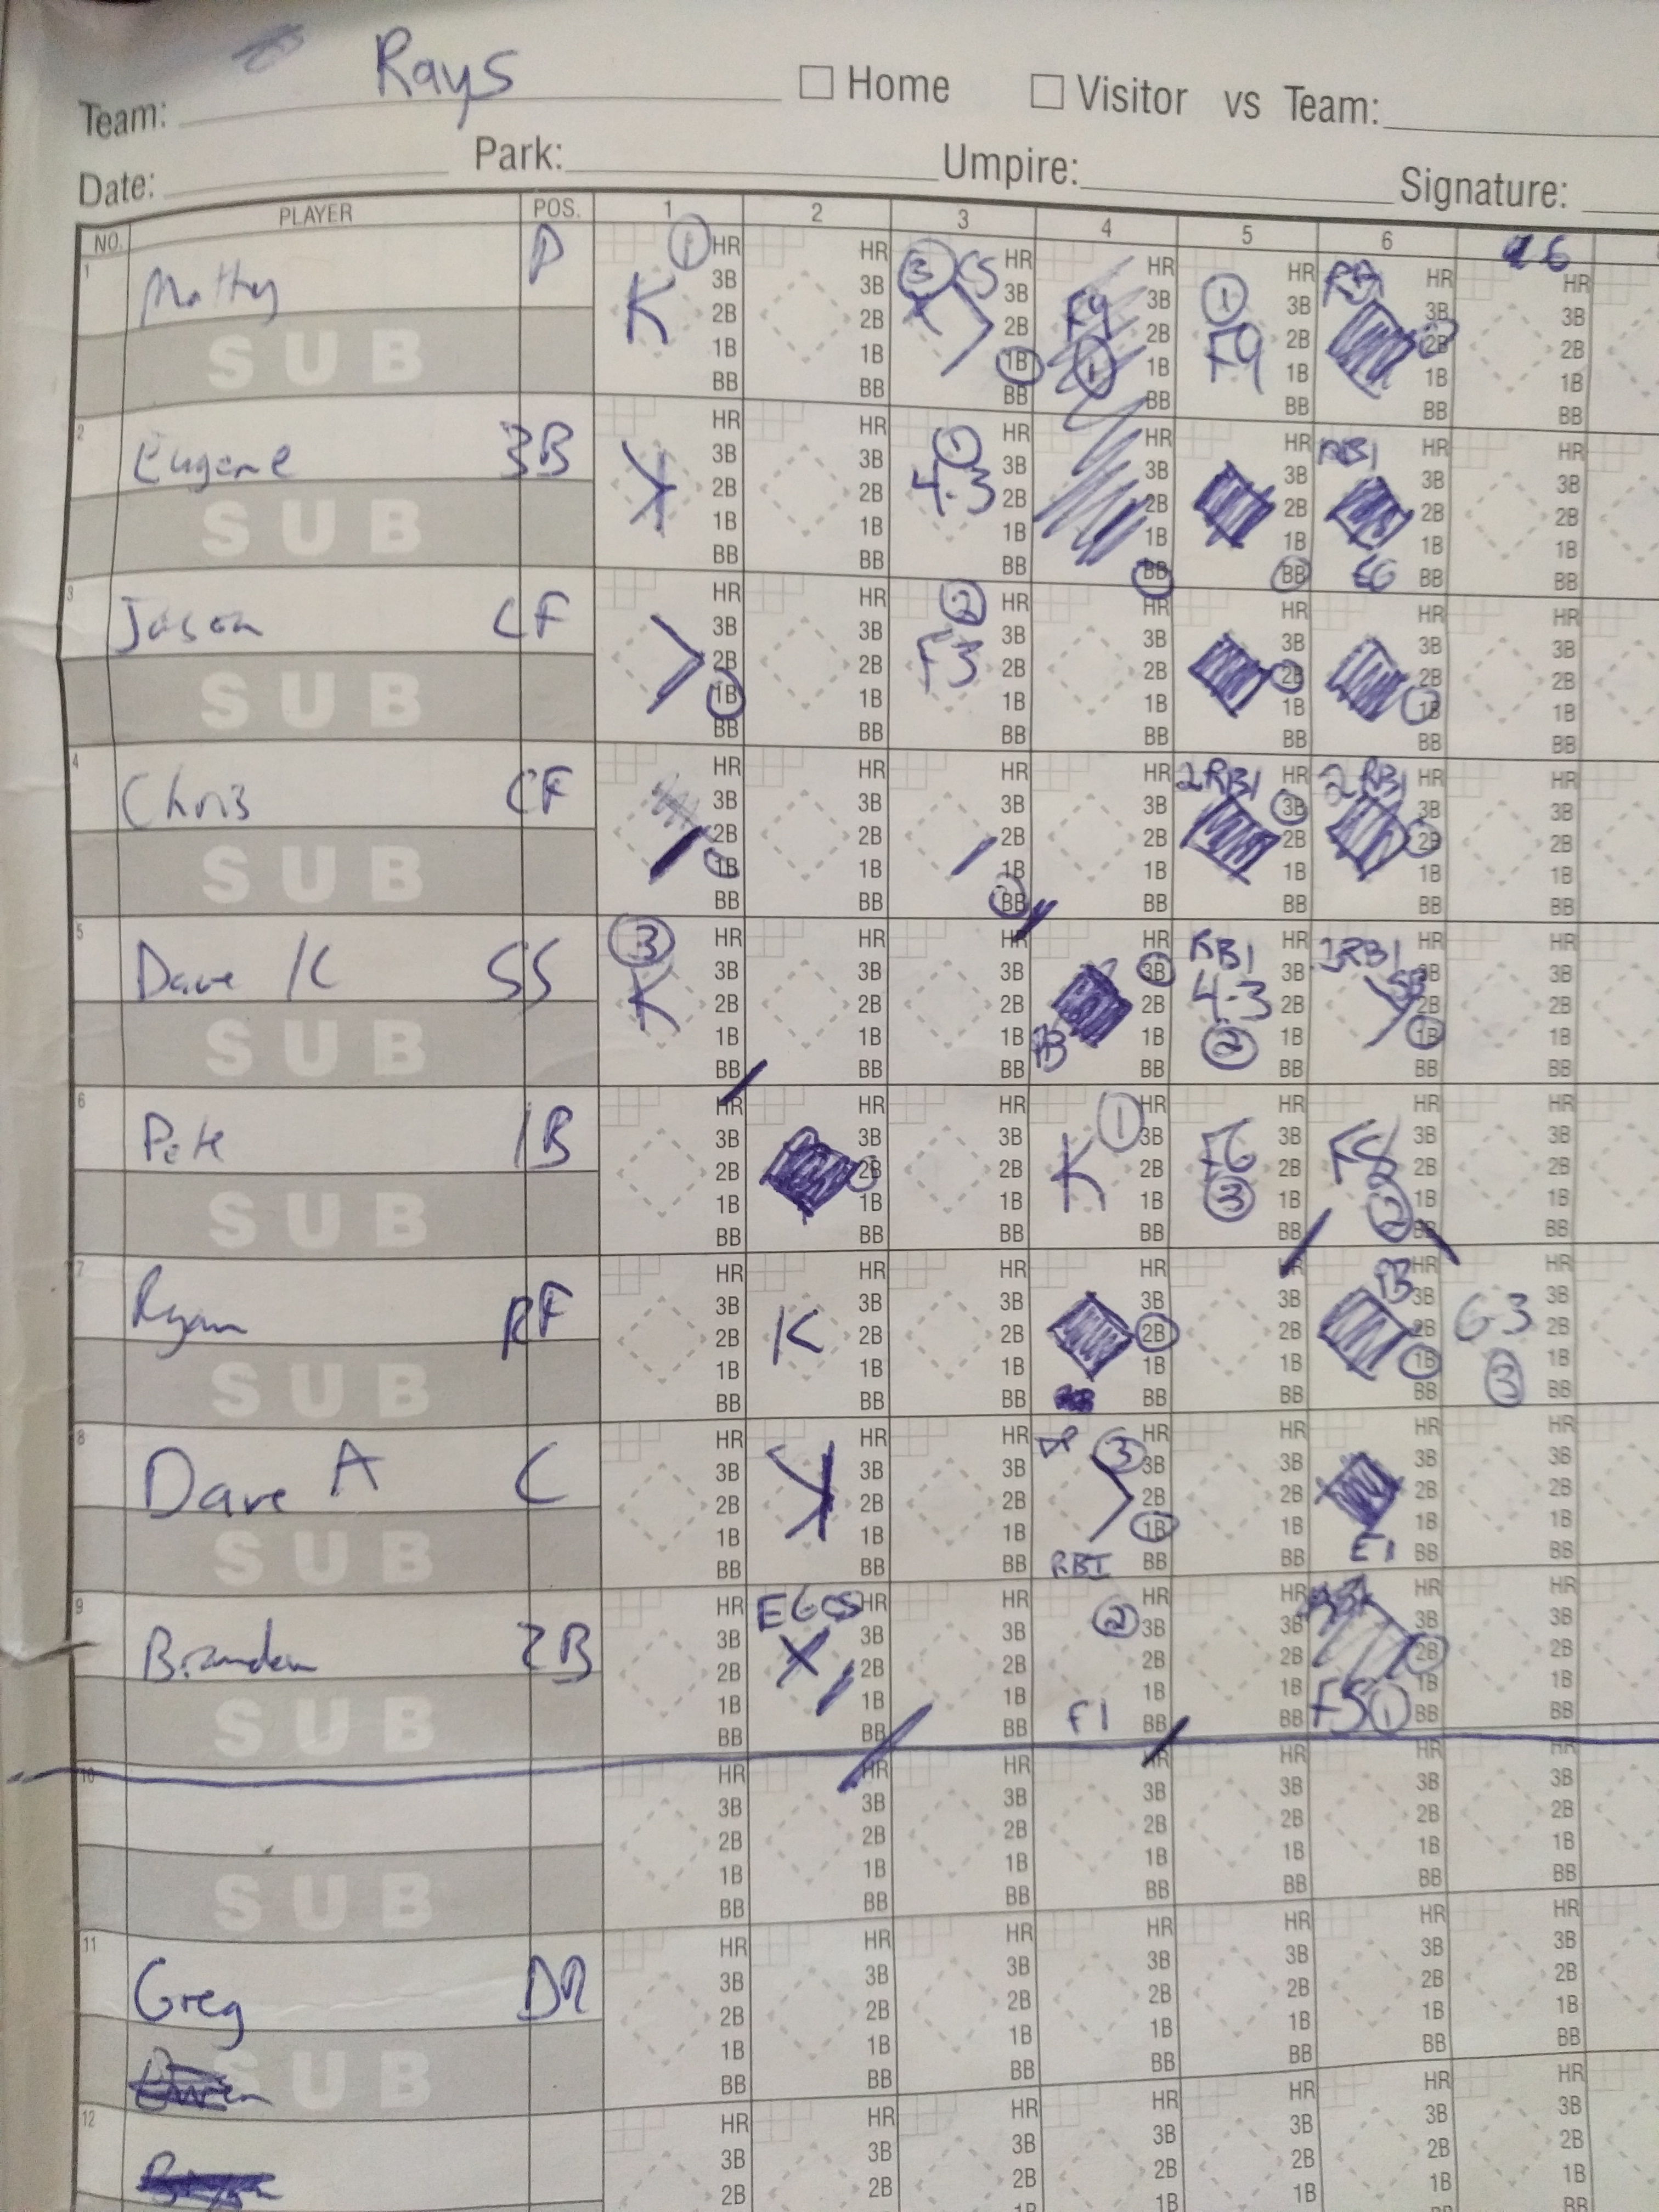 Rays
Team: ☐ Home ☐ Visitor vs Team:
Date: Park: Umpire: Signature:
NO. PLAYER POS. 1 2 3 4 5 6
1 P K 1 HR 3B 2B 1B BB HR 3B 2B 1B BB 3 CS HR 3B 2B 1B BB F9 1 HR 3B 2B 1B BB 1 F9 HR 3B 2B 1B BB HR 3B 2B 1B BB HR 3B 2B 1B
SUB
2 Eugene 3B K HR 3B 2B 1B BB HR 3B 2B 1B BB 1 4-3 HR 3B 2B 1B BB HR 3B 2B 1B BB HR 3B 2B 1B BB RBI E6 HR 3B 2B 1B BB HR 3B 2B 1B BB
SUB
3 Jason CF HR 3B 2B 1B BB HR 3B 2B 1B BB 2 F3 HR 3B 2B 1B BB HR 3B 2B 1B BB HR 3B 2B 1B BB HR 3B 2B 1B BB HR 3B 2B 1B BB
SUB
4 Chris CF HR 3B 2B 1B BB HR 3B 2B 1B BB HR 3B 2B 1B BB HR 3B 2B 1B BB 2RBI HR 3B 2B 1B BB 2RBI HR 3B 2B 1B BB HR 3B 2B 1B BB
SUB
5 Dave K SS 3 K HR 3B 2B 1B BB HR 3B 2B 1B BB HR 3B 2B 1B BB HR 3B 2B 1B BB RBI 4-3 2 HR 3B 2B 1B BB RBI SB HR 3B 2B 1B BB HR 3B 2B 1B BB
SUB
6 Pete 1B HR 3B 2B 1B BB HR 3B 2B 1B BB HR 3B 2B 1B BB 1 K HR 3B 2B 1B BB F6 3 HR 3B 2B 1B BB F8 2 HR 3B 2B 1B BB HR 3B 2B 1B BB
SUB
7 Ryan RF HR 3B 2B 1B BB K HR 3B 2B 1B BB HR 3B 2B 1B BB HR 3B 2B 1B BB HR 3B 2B 1B BB HR 3B 2B 1B BB 63 3 3B 2B 1B BB
SUB
8 Dave A C HR 3B 2B 1B BB K HR 3B 2B 1B BB HR 3B 2B 1B BB 3 RBI HR 3B 2B 1B BB HR 3B 2B 1B BB E1 HR 3B 2B 1B BB HR 3B 2B 1B BB
SUB
9 Brandon 2B HR 3B 2B 1B BB E6 CS HR 3B 2B 1B BB HR 3B 2B 1B BB 2 F1 HR 3B 2B 1B BB HR 3B 2B 1B BB F5 1 HR 3B 2B 1B BB HR 3B 2B 1B BB
SUB
10 HR 3B 2B 1B BB HR 3B 2B 1B BB HR 3B 2B 1B BB HR 3B 2B 1B BB HR 3B 2B 1B BB HR 3B 2B 1B BB HR 3B 2B 1B BB
SUB
11 Greg HR 3B 2B 1B BB HR 3B 2B 1B BB HR 3B 2B 1B BB HR 3B 2B 1B BB HR 3B 2B 1B BB HR 3B 2B 1B BB HR 3B 2B 1B BB
SUB
12 HR 3B 2B HR 3B 2B HR 3B 2B 1B HR 3B 2B 1B HR 3B 2B 1B HR 3B 2B 1B BB HR 3B 2B 1B BB